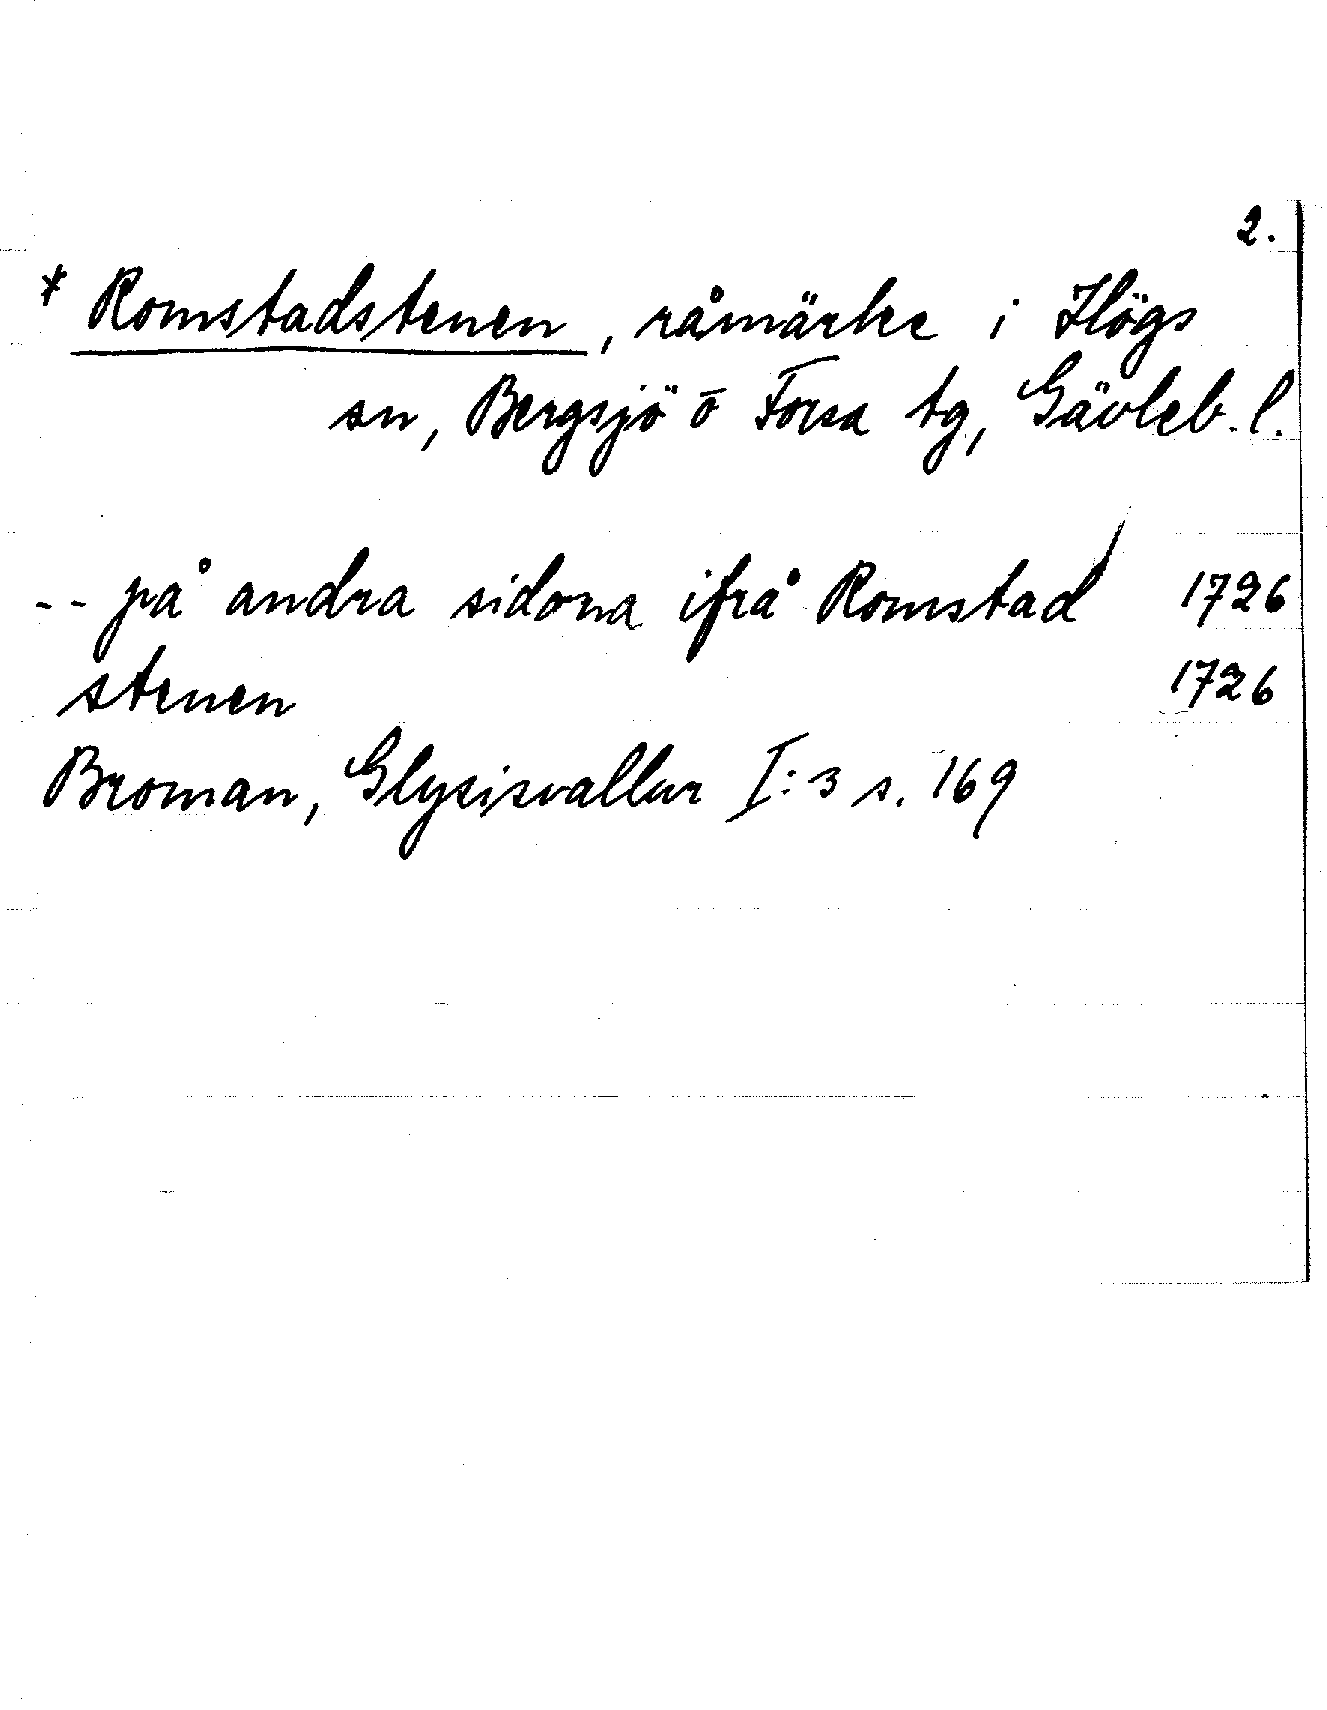 2.
* Romstadstenen, råmärke i Högs
sn, Bergsjö o Forsa tg, Gävleb. l.
-- på andra sidona ifrå Romstad 1726
stenen 1726
Broman, Glysisvallur I:3 s. 169